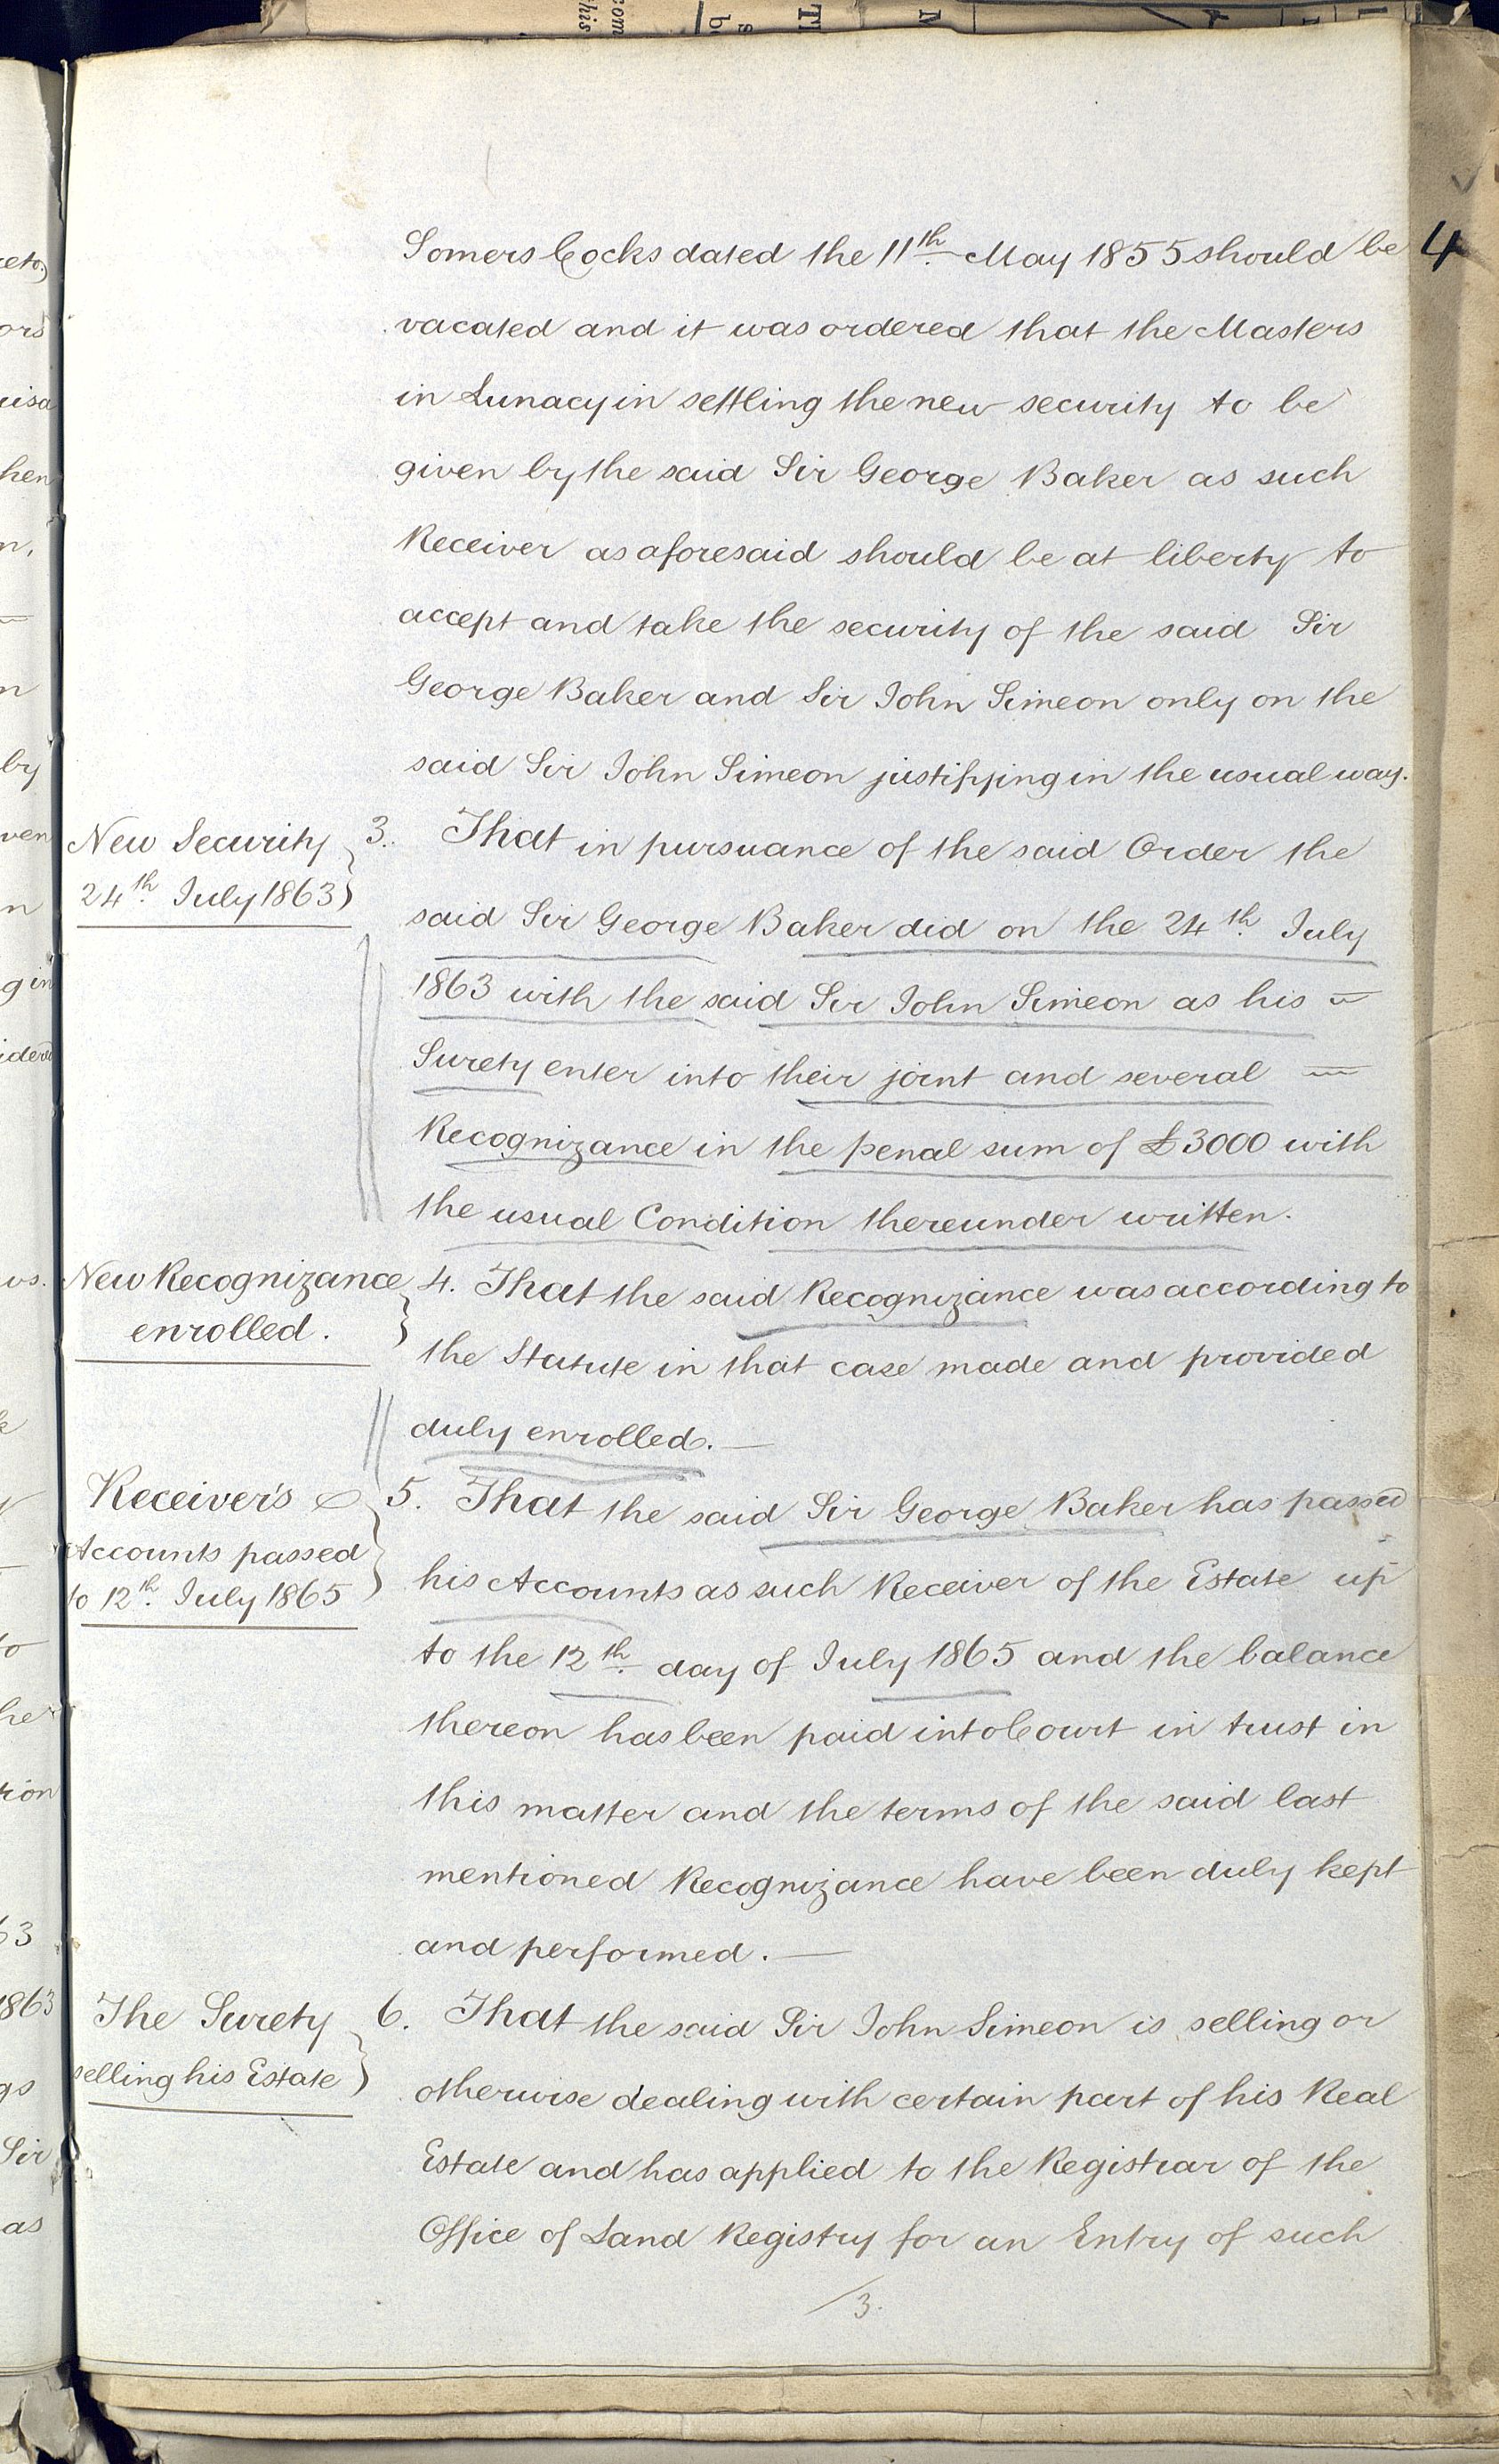 4
Somers Cocks dated the 11th May 1855 should be
vacated and it was ordered that the Masters
in Lunacy in settling the new security to be
given by the said Sir George Baker as such
Receiver as aforesaid should be at liberty to
accept and take the security of the said Sir
George Baker and Sir John Simeon only on the
said Sir John Simeon justifying in the usual way.
New Security
24th July 1863
3. That in pursuance of the said Order the
said Sir George Baker did on the 24th July
1863 with the said Sir John Simeon as his
Surety enter into their joint and several
Recognizance in the penal sum of £3000 with
the usual Condition thereunder written.
New Recognizance
enrolled.
4. That the said Recognizance was according to
the Statute in that case made and provided
duly enrolled.
Receiver's
Accounts passed
to 12th July 1865
5. That the said Sir George Baker has passed
his Accounts as such Receiver of the Estate up
to the 12th day of July 1865 and the balance
thereon has been paid into Court in trust in
this matter and the terms of the said last
mentioned Recognizance have been duly kept
and performed.
The Surety
selling his Estate
6. That the said Sir John Simeon is selling or
otherwise dealing with certain part of his Real
Estate and has applied to the Registrar of the
Office of Land Registry for an Entry of such
3.